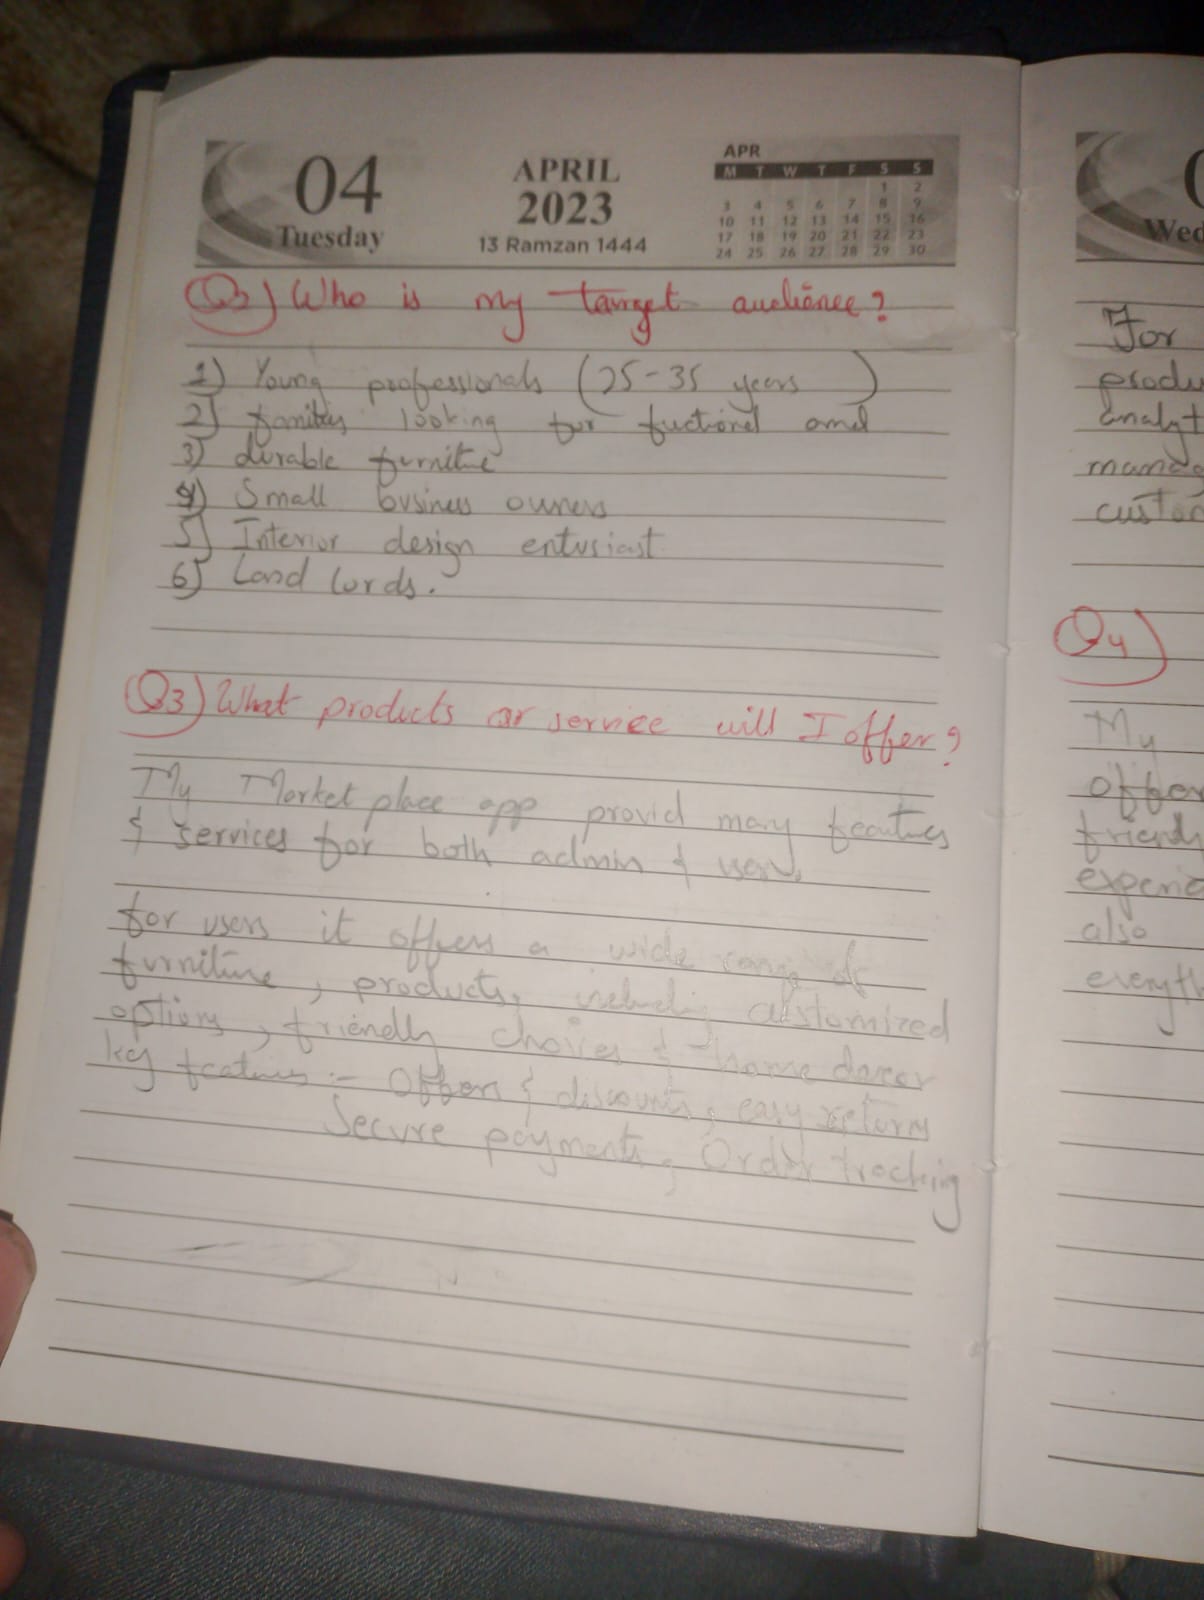 04
Tuesday
APRIL
2023
13 Ramzan 1444
APR
M T W T F S S
1 2
3 4 5 6 7 8 9
10 11 12 13 14 15 16
17 18 19 20 21 22 23
24 25 26 27 28 29 30
Who is my target audience?
1) Young professionals (25-35 years)
2) looking for fuctional and
3) durable furnitue
4) Small business owners
5) Interior design entusiast
6) Land lords.
Q3) What products or service will I offer?
My Market place app provid many features
& services for both admin & user.
for users it offers a wide range of
furniture, products, including customized
options, friendly choices & home decor
key features :- Offers & discounts, easy return
Secure payments, Order tracking
Wed
For
produ
analyt
manag
custo
Q4)
My
offer
friendl
experie
also
everyth